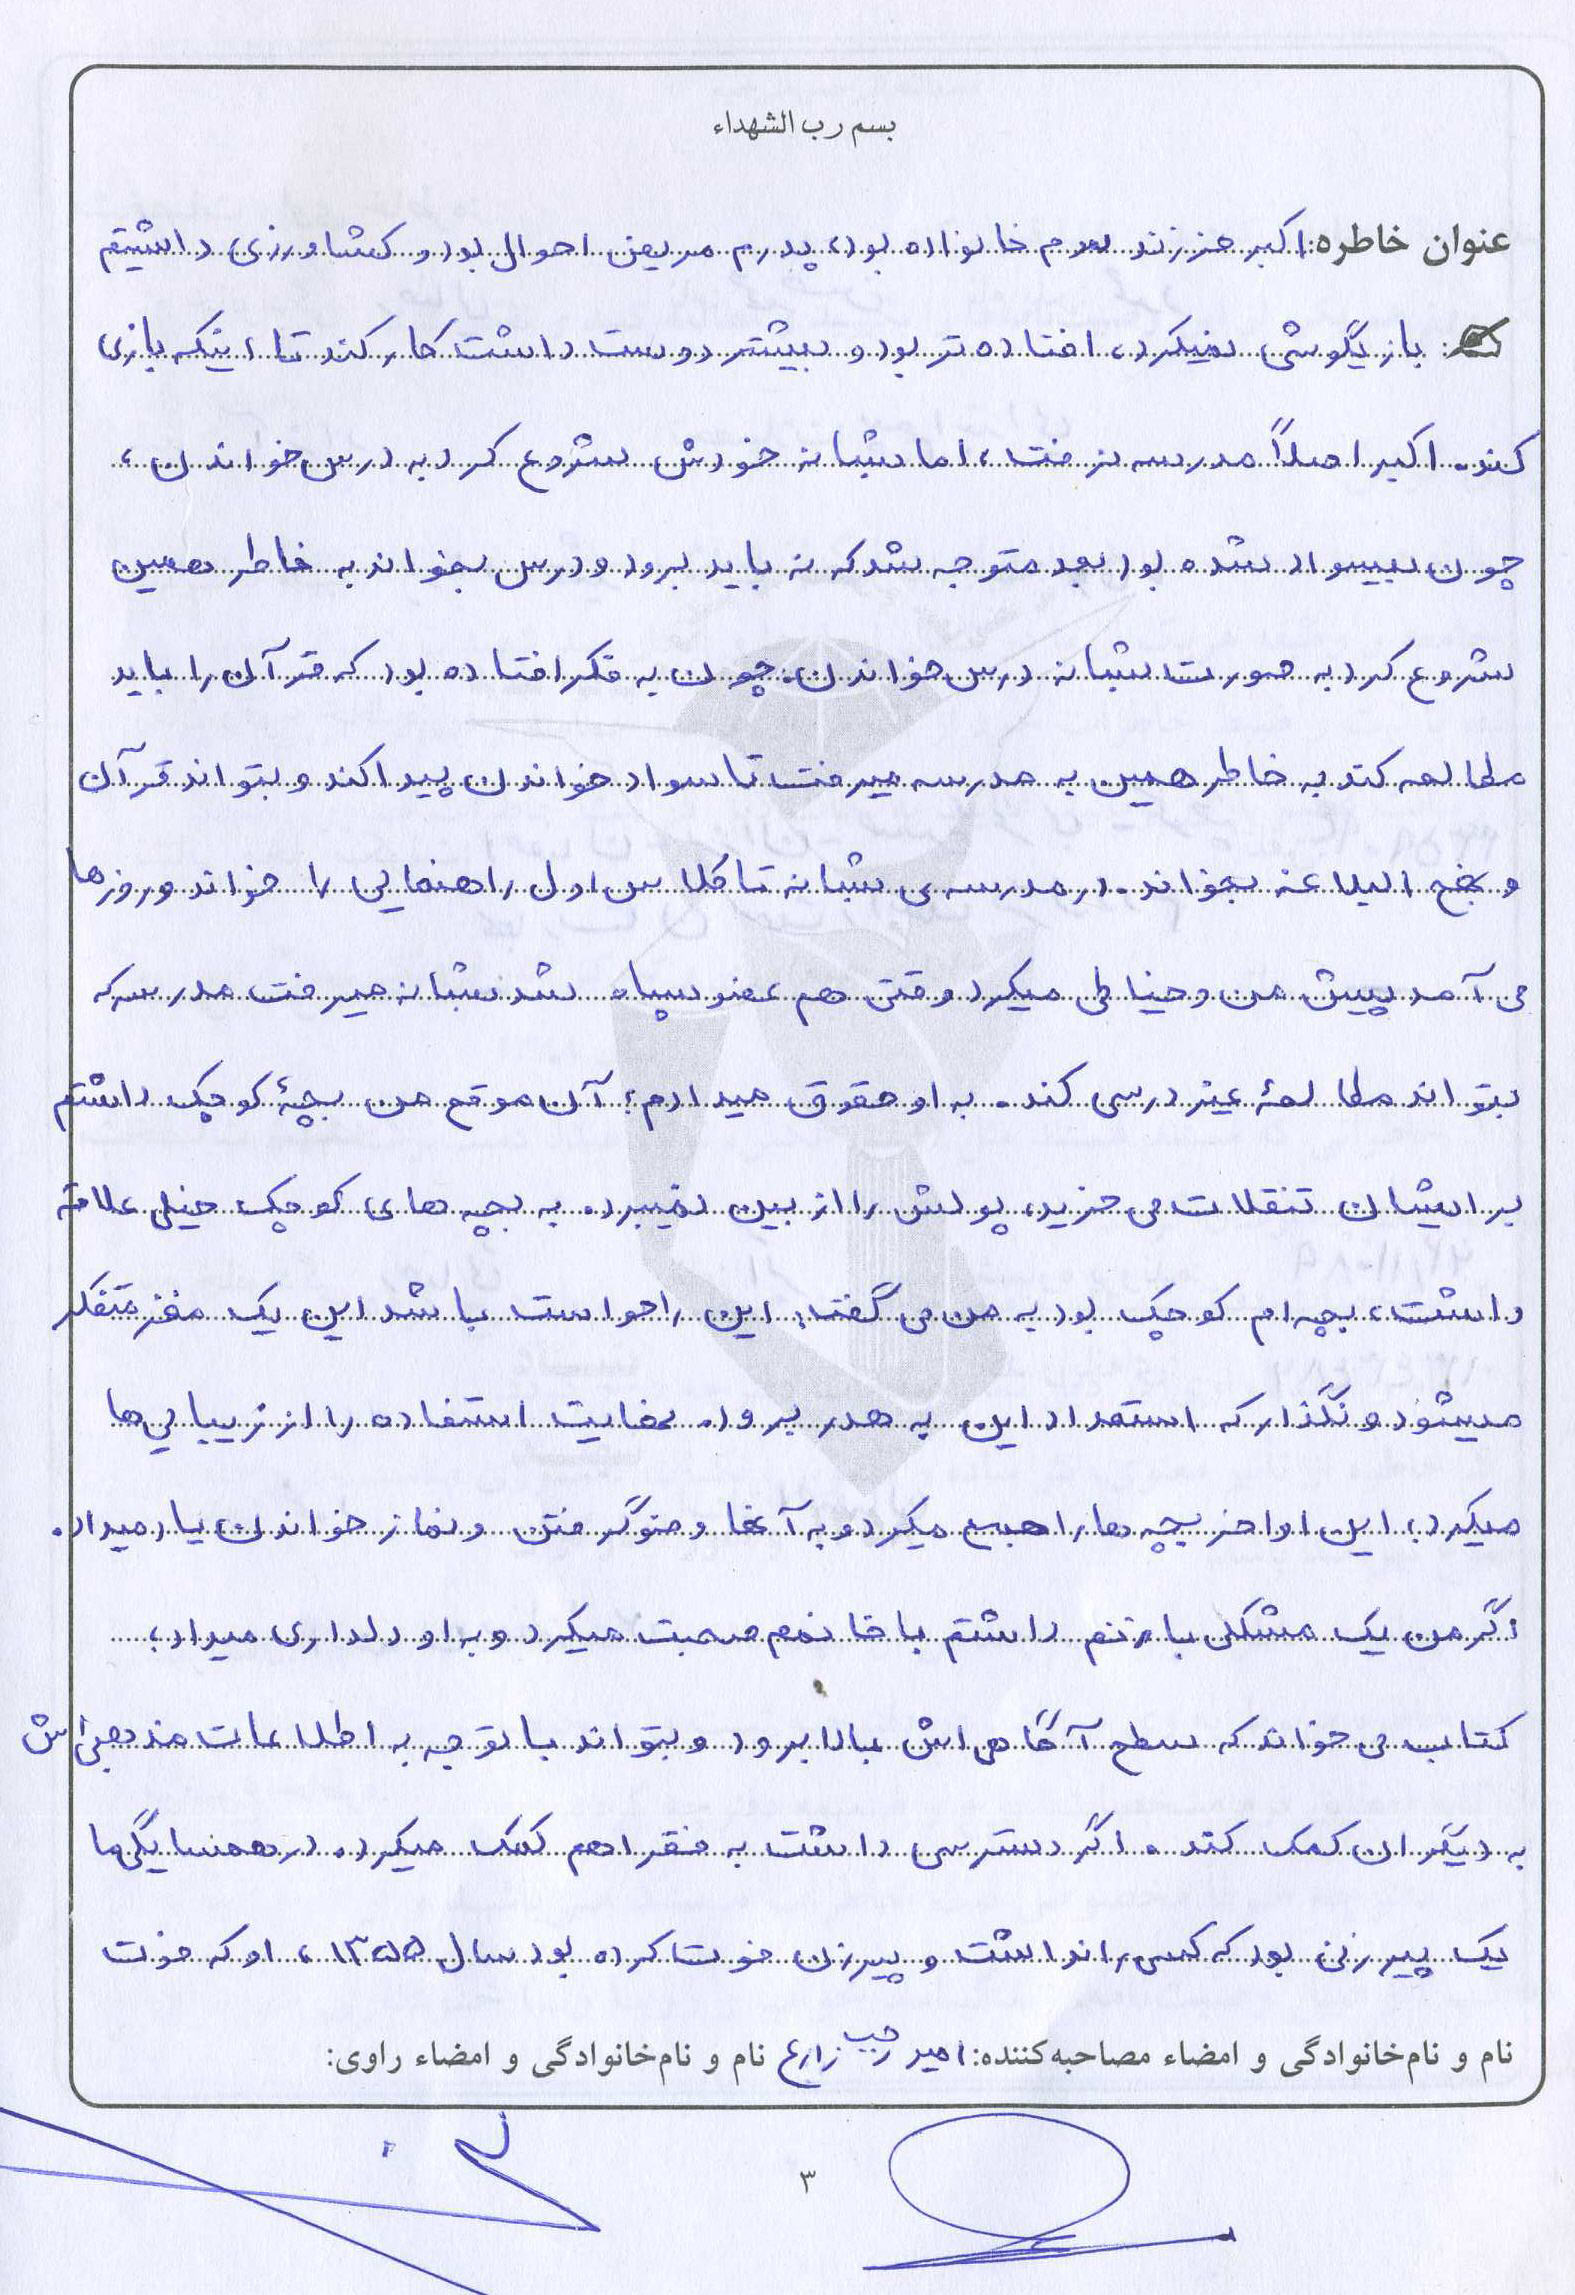 بسم رب الشهداء
عنوان خاطره: اکبر فرزند سوم خانواده بود، پدرم مریض احوال بود و کشاورزی داشتیم
بازیگوشی نمیکرد، افتاده تر بود و بیشتر دوست داشت کار کند تا اینکه بازی
کند. اکبر اصلاً مدرسه نرفت، اما شبانه خودش شروع کرد به درس خواندن،
چون بیسواد شده بود بعد متوجه شد که نه باید برود و درس بخواند به خاطر همین
شروع کرد به صورت شبانه درس خواندن، چون به فکر افتاده بود که قرآن را باید
مطالعه کند به خاطر همین به مدرسه میرفت تا سواد خواندن پیدا کند و بتواند قرآن
و نهج البلاغه بخواند. در مدرسه ی شبانه تا کلاس اول راهنمایی را خواند و روزها
می آمد پیش من و خیاطی میکرد وقتی هم عضو سپاه شد شبانه میرفت مدرسه که
بتواند مطالعهٔ غیر درسی کند. به او حقوق میدادم؛ آن موقع من بچهٔ کوچک داشتم
برایشان تنقلات می خرید، پولش را از بین نمیبرد. به بچه های کوچک خیلی علاقه
داشت، بچه ام کوچک بود به من می گفت: این را حواست باشد این یک مغز متفکر
میشود و نگذار که استعداد این به هدر برود. نهایت استفاده را از زیبایی ها
میکرد، این اواخر بچه ها را جمع میکرد و به آنها وضو گرفتن و نماز خواندن یاد میداد.
اگر من یک مشکلی با زنم داشتم با خانمم صحبت میکرد و به او دلداری میداد،
کتاب می خواند که سطح آگاهی اش بالا برود و بتواند با توجه به اطلاعات مذهبی اش
به دیگران کمک کند. اگر دسترسی داشت به فقرا هم کمک میکرد. در همسایگی ما
یک پیرزنی بود که کسی را نداشت و پیرزن فوت کرده بود سال ۱۳۵۵، او که فوت
نام و نام‌خانوادگی و امضاء مصاحبه‌کننده: امیر رجب زارع نام و نام‌خانوادگی و امضاء راوی:
۳